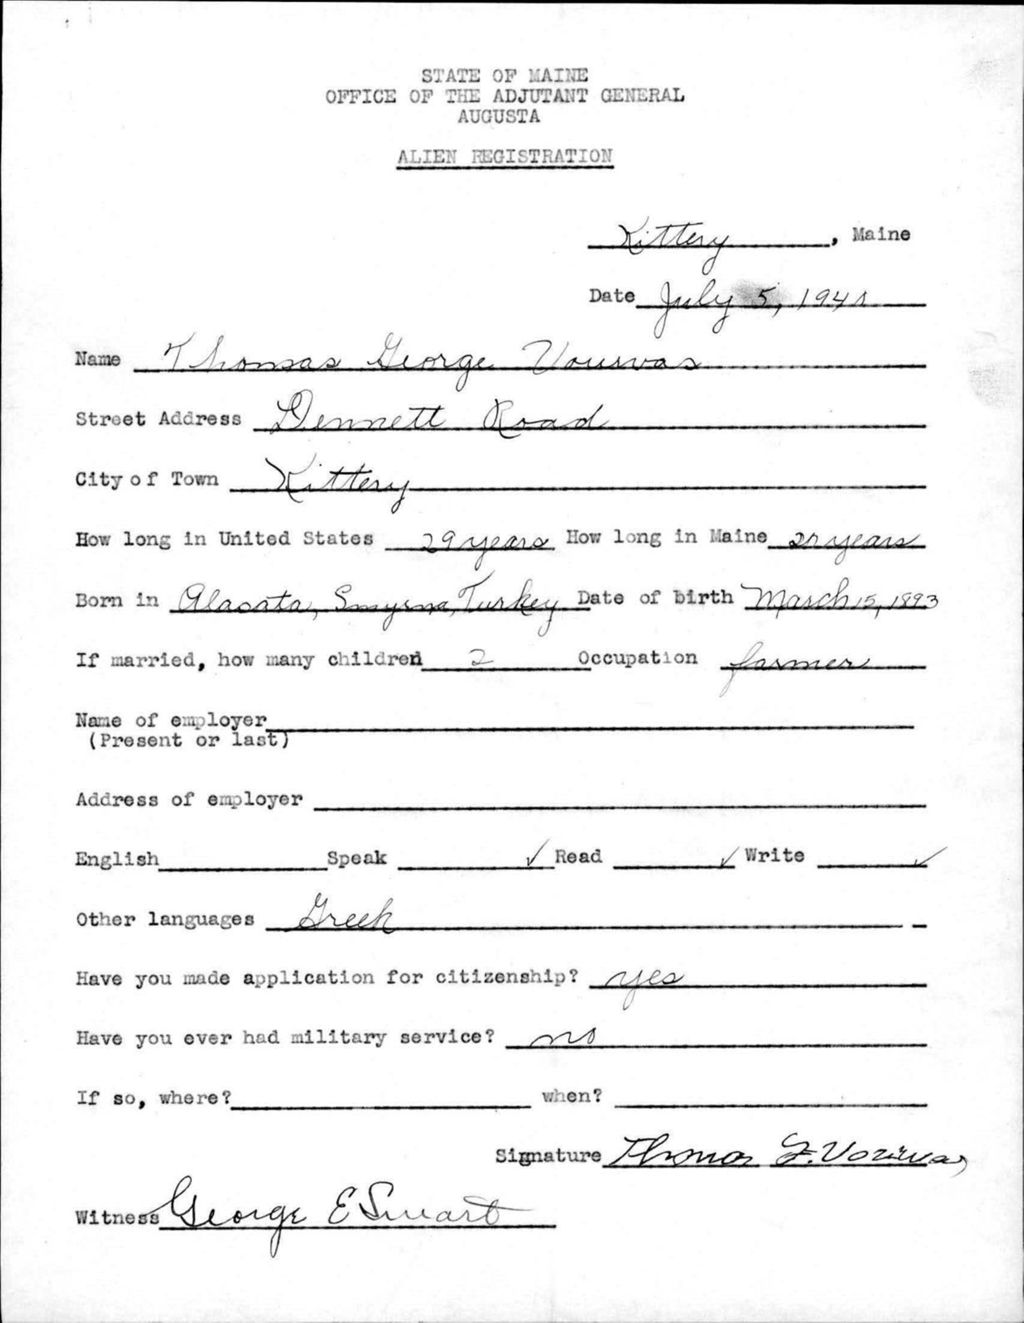 STATE OF MAINE
OFFICE OF THE ADJUTANT GENERAL
AUGUSTA
ALIEN REGISTRATION
Kittery, Maine
Date July 5, 1940
Name Thomas George Vourvas
Street Address Dennett Road
City of Town Kittery
How long in United States 29 years How long in Maine years
Born in Alacata, Smyrna, Turkey Date of birth March 15, 1893
If married, how many children 2 Occupation farmer
Name of employer
(Present or last)
Address of employer
English Speak ✓ Read ✓ Write ✓
Other languages Greek
Have you made application for citizenship? yes
Have you ever had military service? no
If so, where? when?
Signature Thomas G. Vourvas
Witness George E Smart